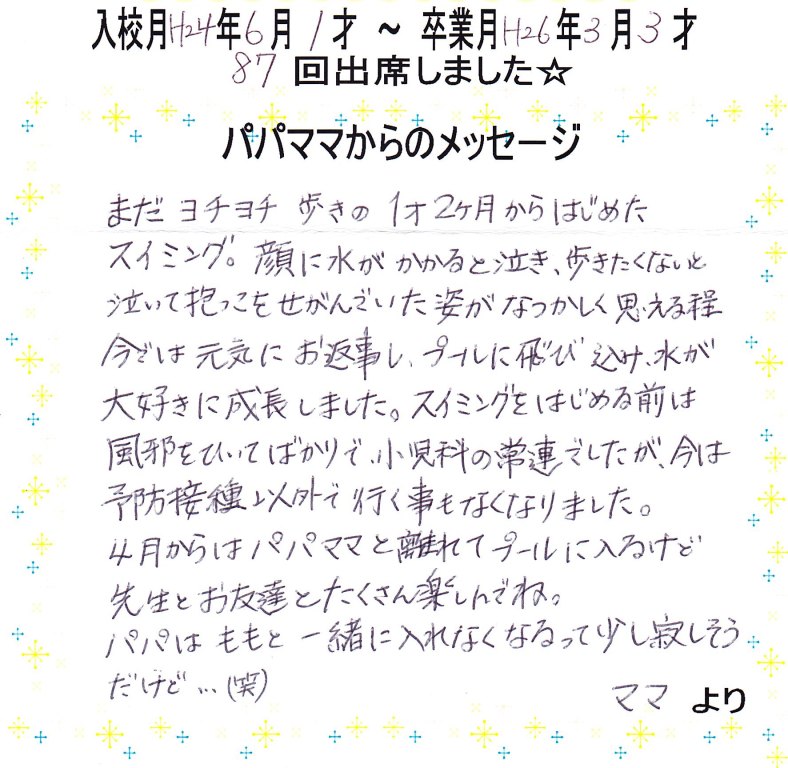 入校月H24年6月1才 ~ 卒業月H26年3月3才
87回出席しました☆
パパママからのメッセージ
まだ ヨチヨチ 歩きの 1才2ヶ月からはじめた
スイミング。顔に水が かかると泣き、歩きたくないと
泣いて抱っこをせがんでいた姿がなつかしく思える程
今では元気にお返事し、プールに飛び込み、水が
大好きに成長しました。スイミングをはじめる前は
風邪をひいてばかりで、小児科の常連でしたが、今は
予防接種以外で行く事もなくなりました。
4月からはパパママと離れてプールに入るけど
先生とお友達とたくさん楽しんでね。
パパはももと一緒に入れなくなるって少し寂しそう
だけど…(笑)
ママ より